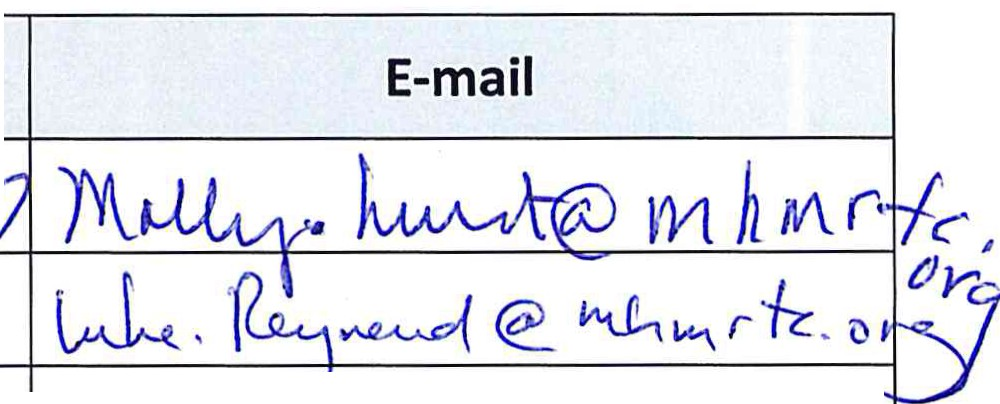 E-mail
Molly.hurst@mhmrtc.org
Luke.Reynend@mhmrtc.org